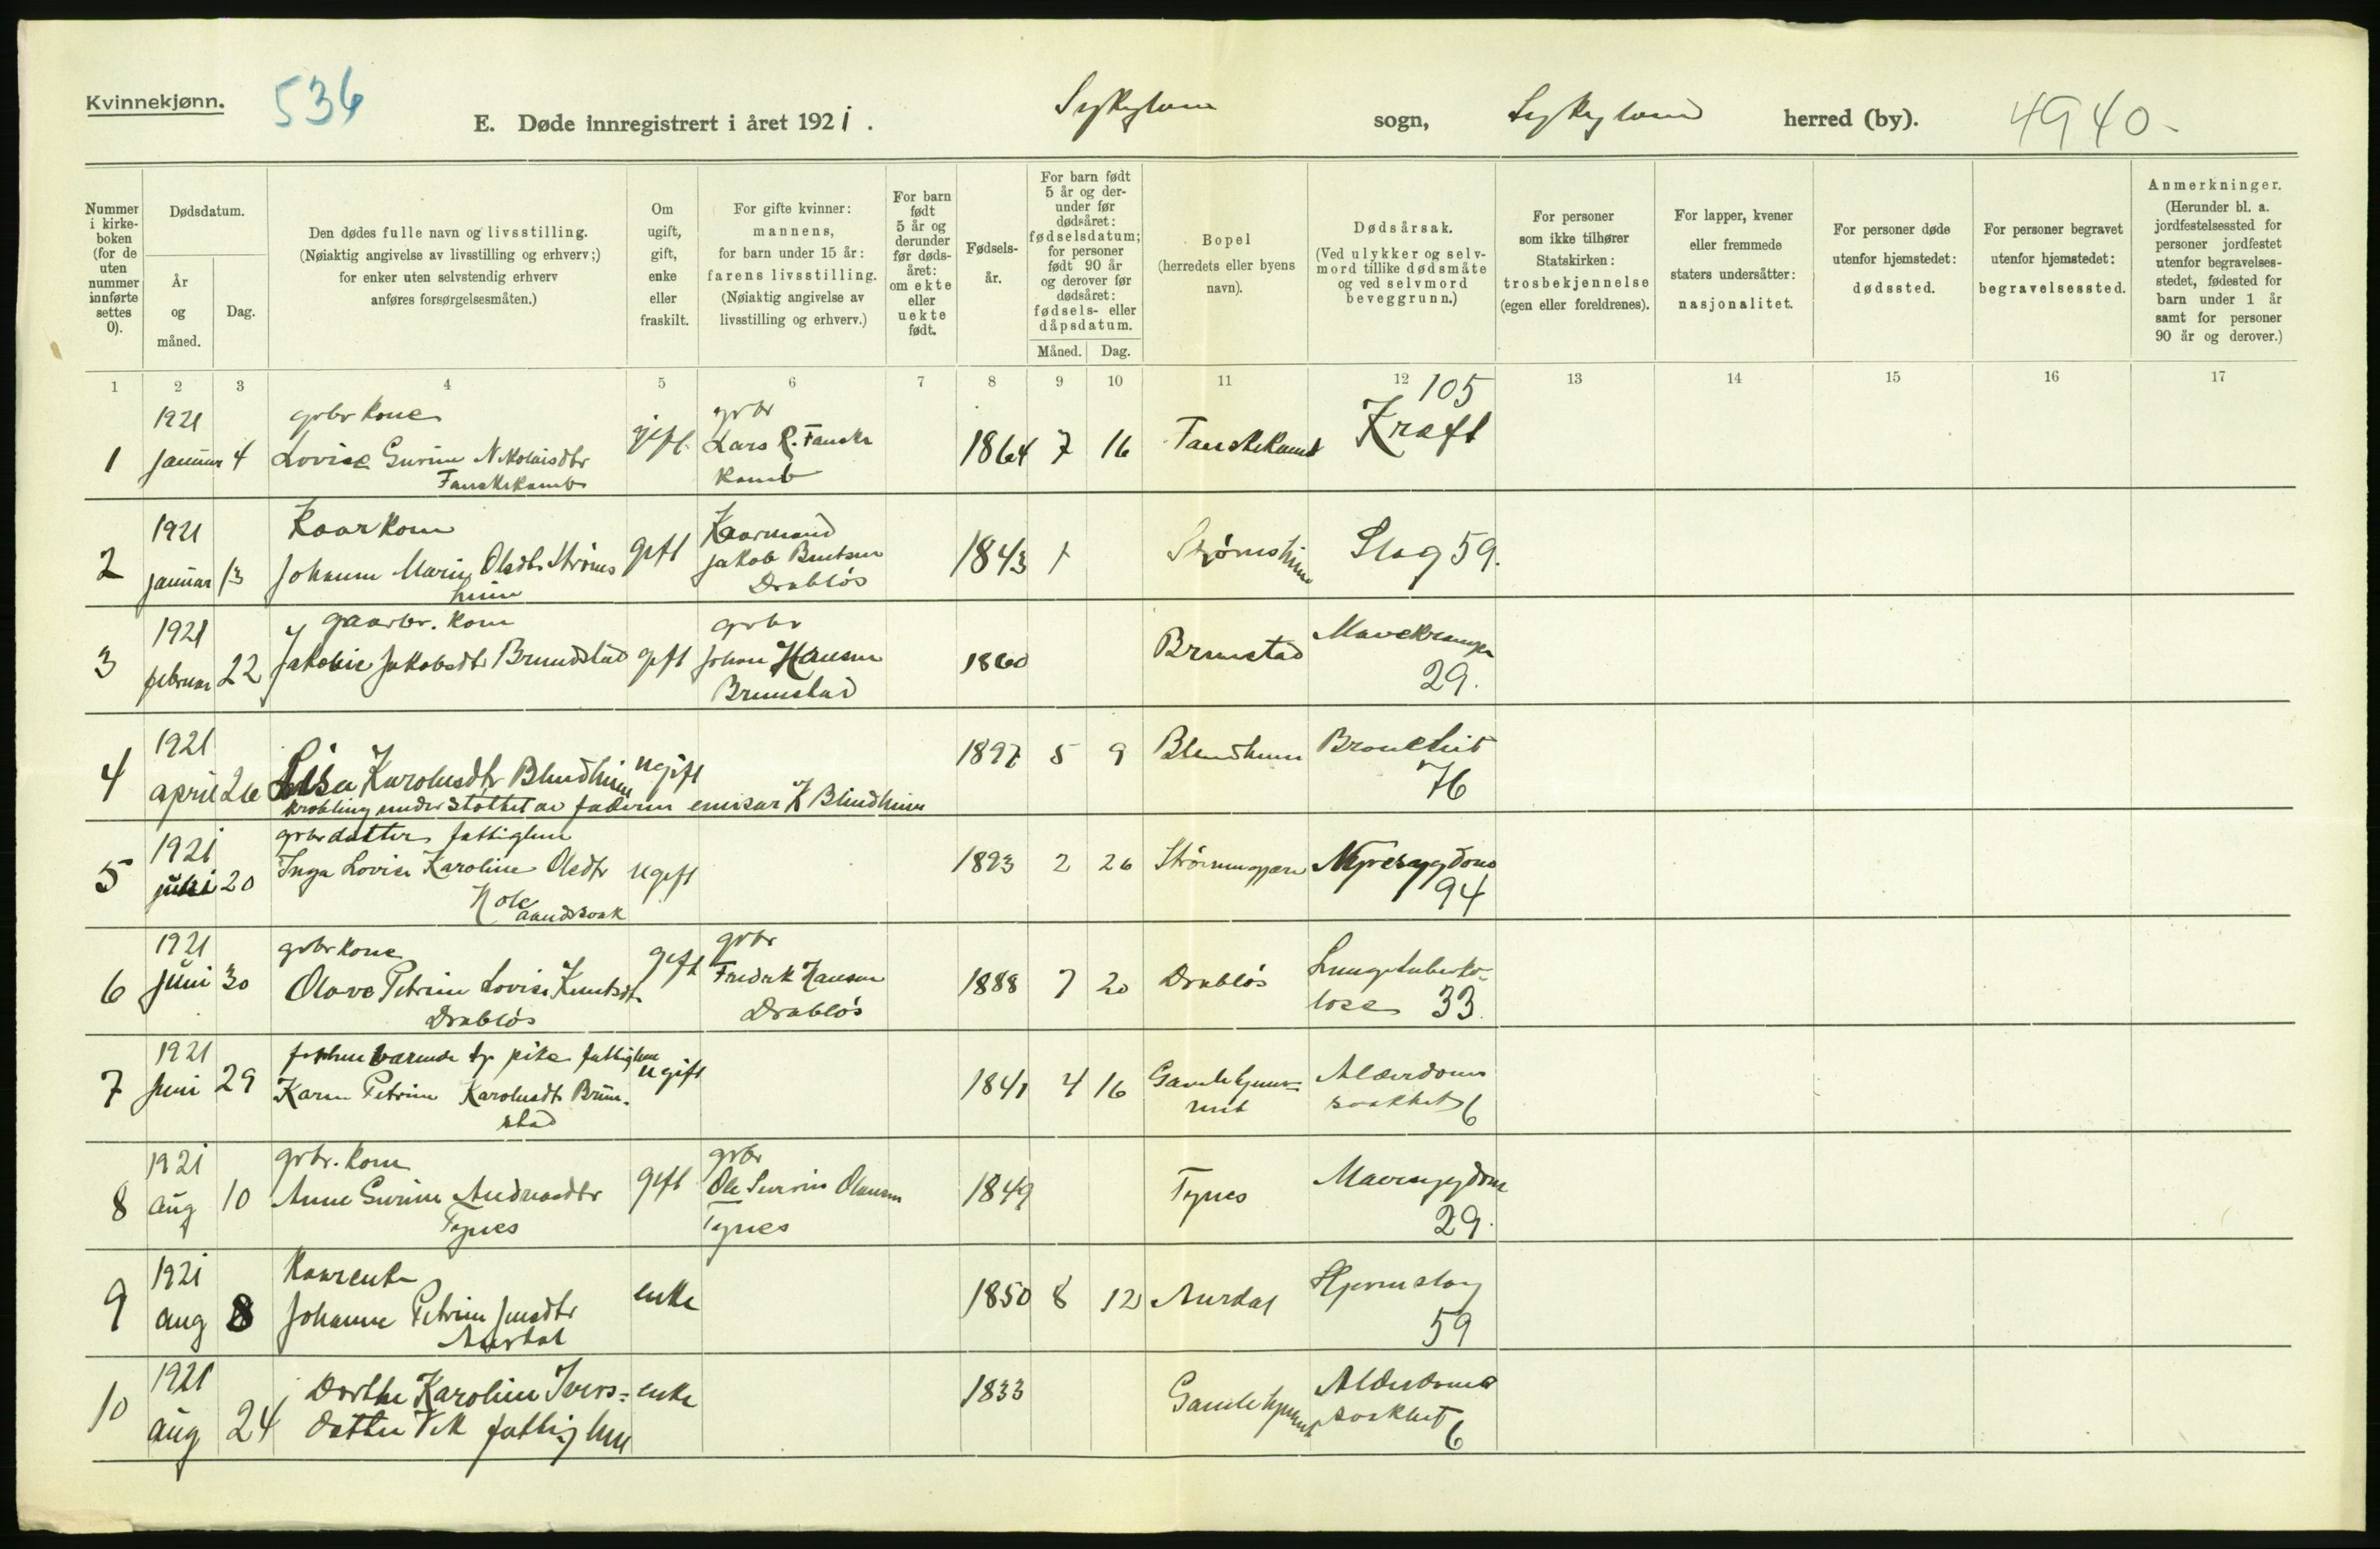 Kvinnekjønn.
536
E. Døde innregistrert i året 1921.
Sykylven sogn, Sykylven herred (by).
4940-
Nummer i kirke-boken (for de uten nummer innførte settes 0).
Dødsdatum.
År og måned.
Dag.
Den dødes fulle navn og livsstilling.
(Nøiaktig angivelse av livsstilling og erhverv;)
for enker uten selvstendig erhverv
anføres forsørgelsesmåten.)
Om ugift, gift, enke eller fraskilt.
For gifte kvinner:
mannens,
for barn under 15 år:
farens livsstilling.
(Nøiaktig angivelse av
livsstilling og erhverv.)
For barn født 5 år og derunder før døds-året: om ekte eller uekte født.
Fødsels-år.
For barn født 5 år og der-under før dødsåret: fødselsdatum; for personer født 90 år og derover før dødsåret: fødsels- eller dåpsdatum.
Måned. Dag.
Bopel
(herredets eller byens navn).
Dødsårsak.
(Ved ulykker og selv-mord tillike dødsmåte og ved selvmord beveggrunn.)
For personer som ikke tilhører Statskirken: trosbekjennelse (egen eller foreldrenes).
For lapper, kvener eller fremmede staters undersåtter: nasjonalitet.
For personer døde utenfor hjemstedet: dødssted.
For personer begravet utenfor hjemstedet: begravelsessted.
Anmerkninger.
(Herunder bl. a. jordfestelsessted for personer jordfestet utenfor begravelses-stedet, fødested for barn under 1 år samt for personer 90 år og derover.)
1 2 3 4 5 6 7 8 9 10 11 12 13 14 15 16 17
1921 grbr kone grbr 105
1 januar 4 Lovise Gurine Nikolaisdtr gift Lars R. Fauske 1864 7 16 Fauskekamb Kræft
Fauskekamb kamb
1921 Kaarkone Kaarmand
2 januar 13 Johanne Marie Olsdtr Strøms gift Jakob Bentsen 1843 1 Strømsheim Slag 59.
heim Drabløs
1921 gaardbr. kone grbr
3 februar 22 Jakobie Jakobsdtr Brunstad gift Johan Hansen 1860 Brunstad Mavekræft
Brunstad 29.
1921
4 april 26 Lisa Karolusdtr Blindheim ugift 1897 5 9 Blindheim Bronchit
krøbling understøttet av faderen emisær K Blindheim 76
1921 grbrdatter fattiglem
5 juli 20 Inga Lovise Karoline Olsdtr ugift 1893 2 26 Nyresygdom
aandssvak 94
1921 grbrkone grbr
6 juni 30 Olave Petrine Lovise Knutsdtr gift Fredrik Hansen 1888 7 20 Drabløs Lungetuberku-
Drabløs Drabløs lose 33.
1921 pike fattiglem
7 juni 29 Karen Petrine Karolusdtr Brun- ugift 1841 4 16 Gamlehjem- Alderdoms
stad met svakhet 6
1921 grbr. kone grbr
8 aug 10 Anne Gurine Andreasdtr gift Ole Severin Olausen 1849 Tynes Mavesygdom
Tynes Tynes 29.
1921 Kaarenke
9 aug 8 Johanne Petrine Jensdtr enke 1850 8 12 Aurdal Hjerneslag
Aurdal 59
1921
10 aug 24 Dorthe Karoline Ivers= enke 1833 Gamlehjemmet Alderdoms
datter Vik fattiglem svakhet 6